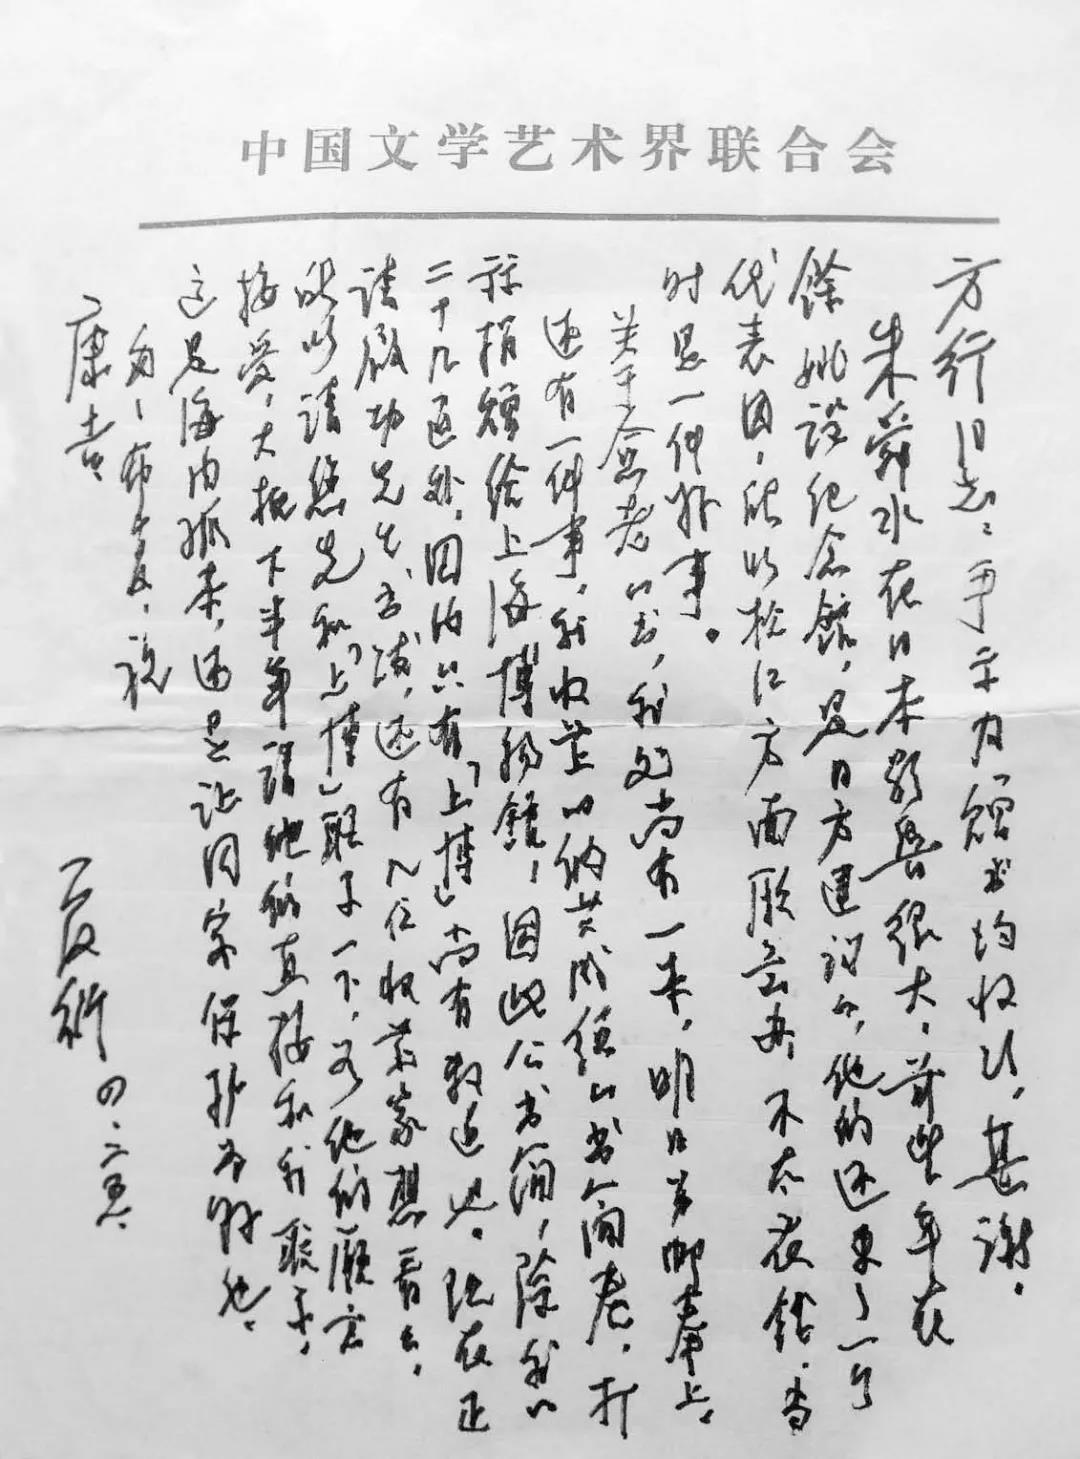 中国文学艺术界联合会
方行同志：手示及赠书均收到，甚谢。
朱舜水在日本影响很大，前些年在
馀姚设纪念馆，是日方建议的，他们还来了一个
代表团，所以松江方面愿意办，不太花钱，当
时是一件好事。
关于愈老的书，我处尚有一本，明日当邮奉上。
还有一件事，我收藏的纳兰成德的书简卷，打
算捐赠给上海博物馆，因此公书简，除我的
二十几通外，国内只有「上博」尚有数通也。现在正
请启功先生书跋，还有几位收藏家想看看，
所以请您先和「上博」联系一下，若他们愿意
接受，大概下半年请他们直接和我联系，
这是海内孤本，还是让国家保护为好也。
匆匆布复，祝
康吉
夏衍 四、二五、